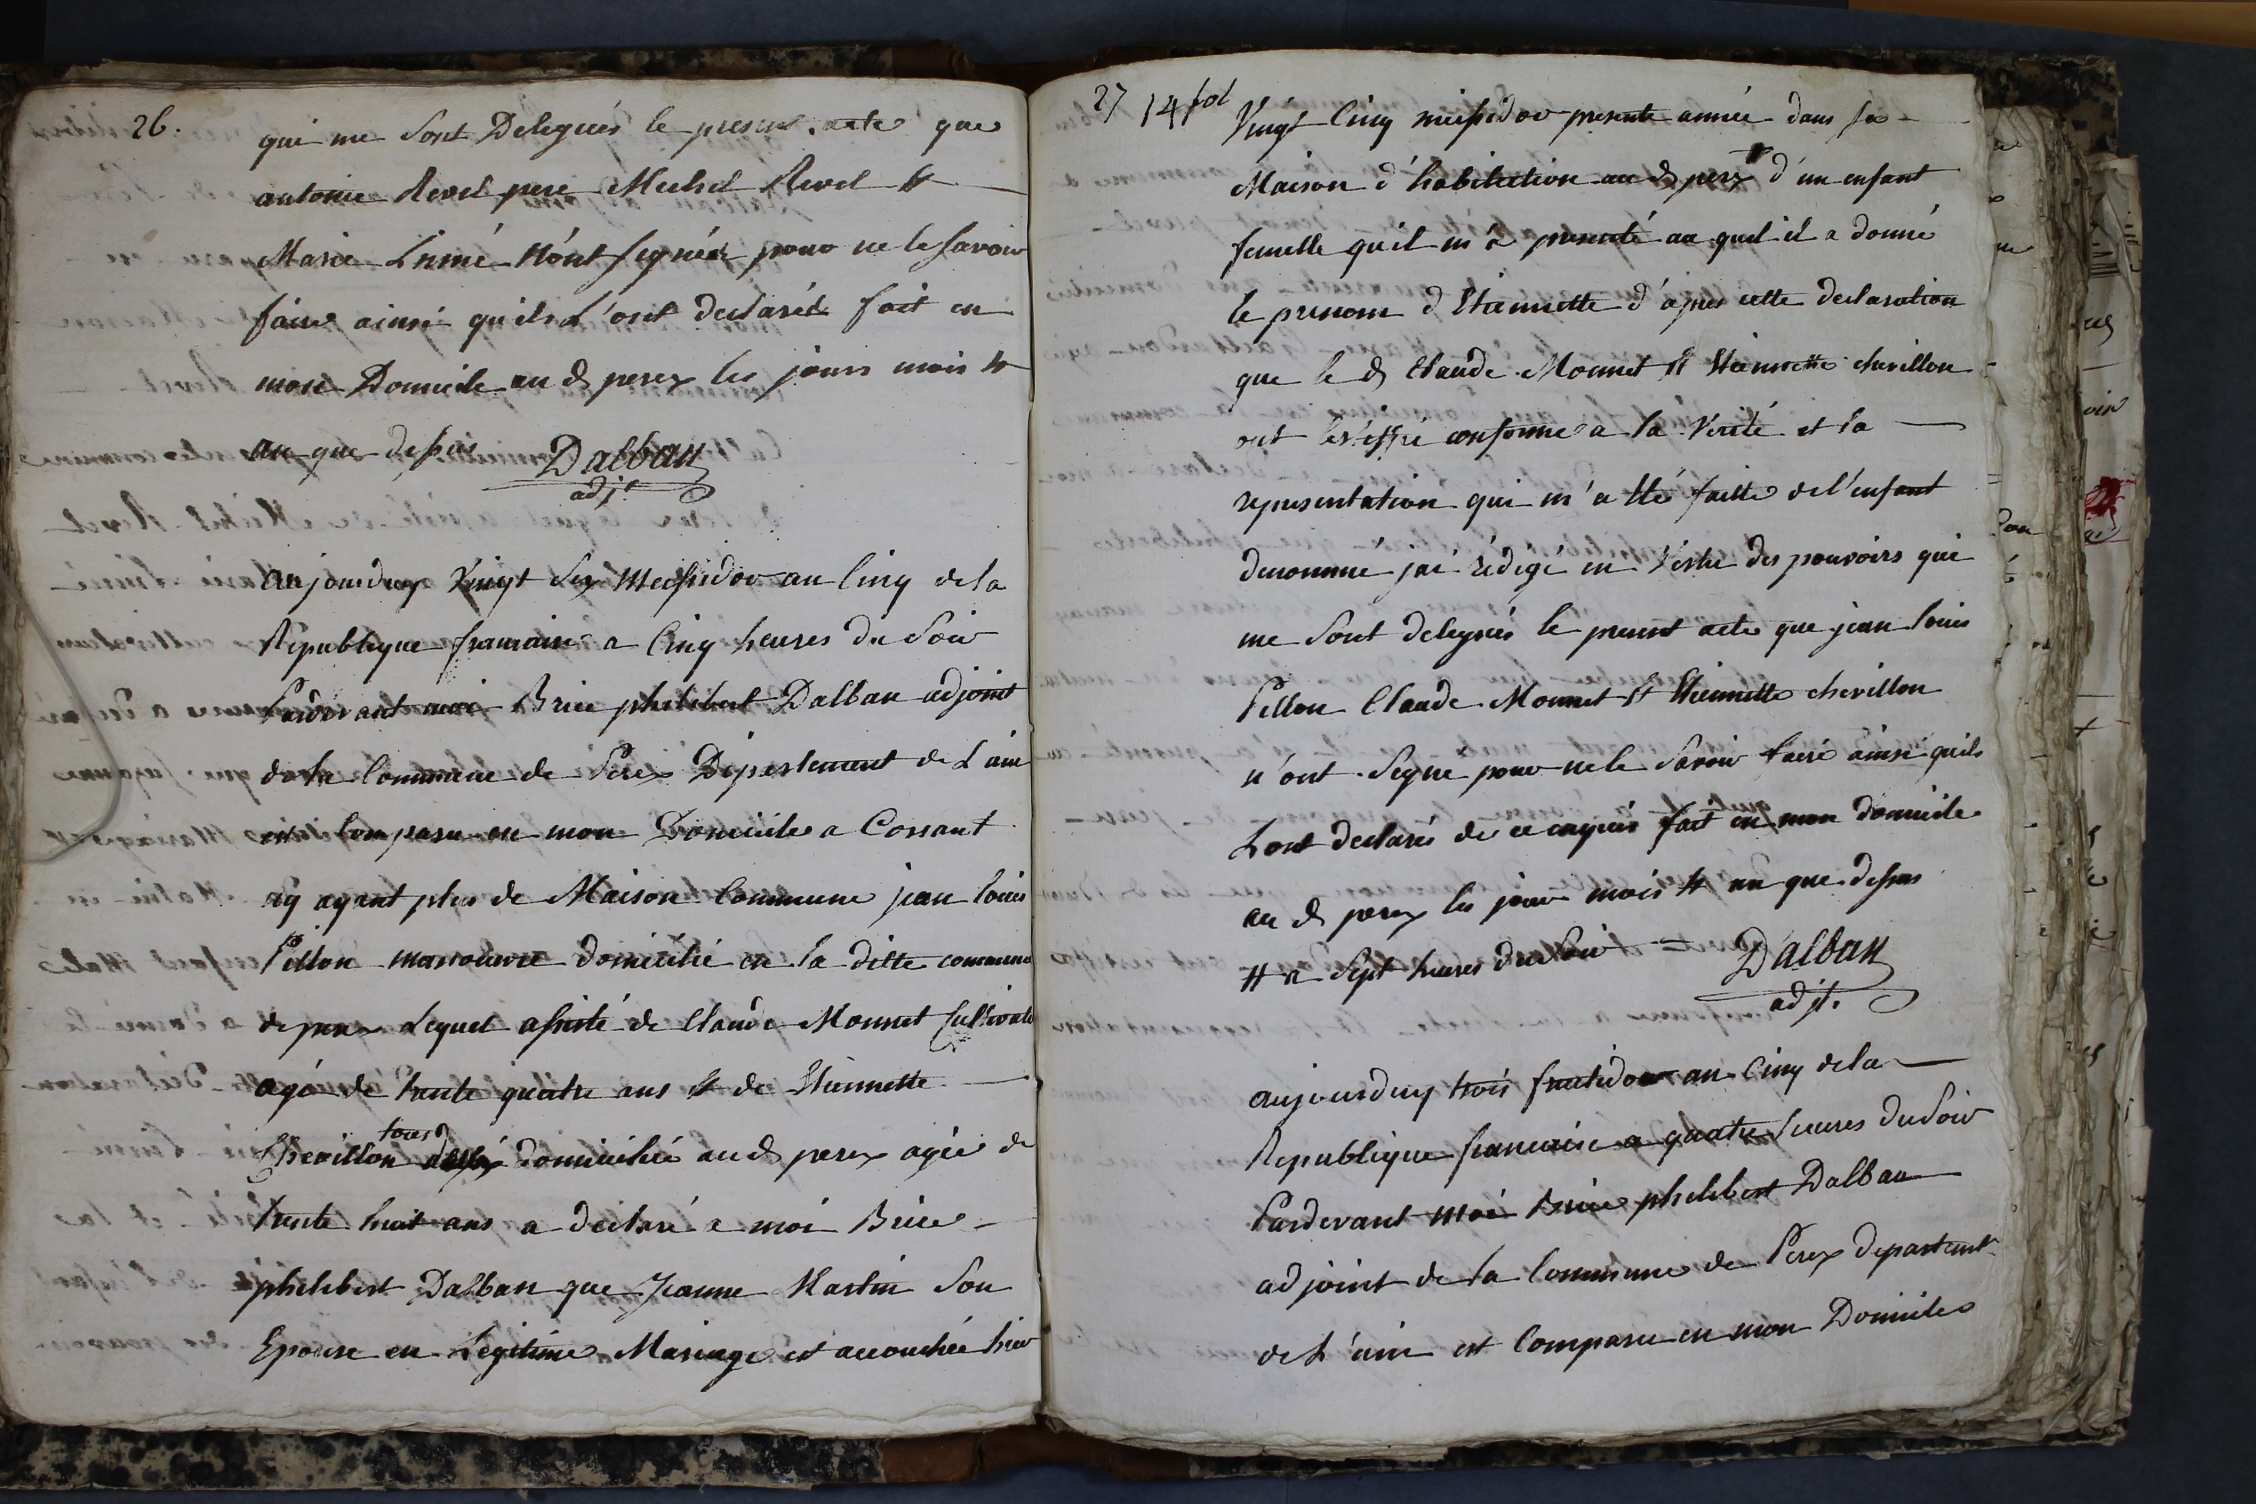 26.
qui me sont Delegués le present acte que
antoine Revel pere Michel Revel et
Marie Linné n'ont signéz pour ne le savoir
faire ainsi qu'ils L'ont declaréz fait en
mon Domicile au d perex les jours mois et
an que dessus Dalban
adjt
aujourduy Vingt six Messidor an Cinq de la
Republique francaise a Cinq heures du Soir
Pardevant moi Brice philibert Dalban adjoint
de la Commune de Perex Département de L'ain
est Comparu en mon Domicile a Corsant
ny ayant plus de Maison Commune jean louis
Pillon manouvre domicilié en la ditte commune
de perex Lequel assisté de Claude Monnet Cultivate
agé de trente quatre ans et de Etiennette
tous d
Chevillon domiciliée au d perex agée de
trente huit ans a declaré a moi Brice
philibert Dalban que Jeanne Martin Son
Epouse en Légitime Mariage est accouchée hier
27 14 fol
Vingt Cinq messidor presente année dans sa
Maison d'habitation au d perex d'un enfant
femelle qu'il m'a presenté au quel il a donné
le prenom d Etiennette d'apres cette declaration
que le d Claude Monnet et Etiennette chevillon
ont certiffié conforme a la Verité et la
representation qui m'a été faitte de l'enfant
denommé jai rédigé en Vertu des pouvoirs qui
me sont delegués le present acte que jean louis
Pillon Claude Monnet et Etiennette chevillon
n'ont Signe pour ne le Savoir faire ainsi quils
Lont declarés de ce enquis fait en mon domicile
au d perex les jour mois et an que dessus
et a Sept heures du Soir = Dalban
adjt.
aujourduy trois fructidor an Cinq de la
Republique francaise a quatre heures du Soir
Pardevant Moi Brice philibert Dalban
adjoint de la Commune de Perex departemt
de L'ain est Comparu en mon Domicile